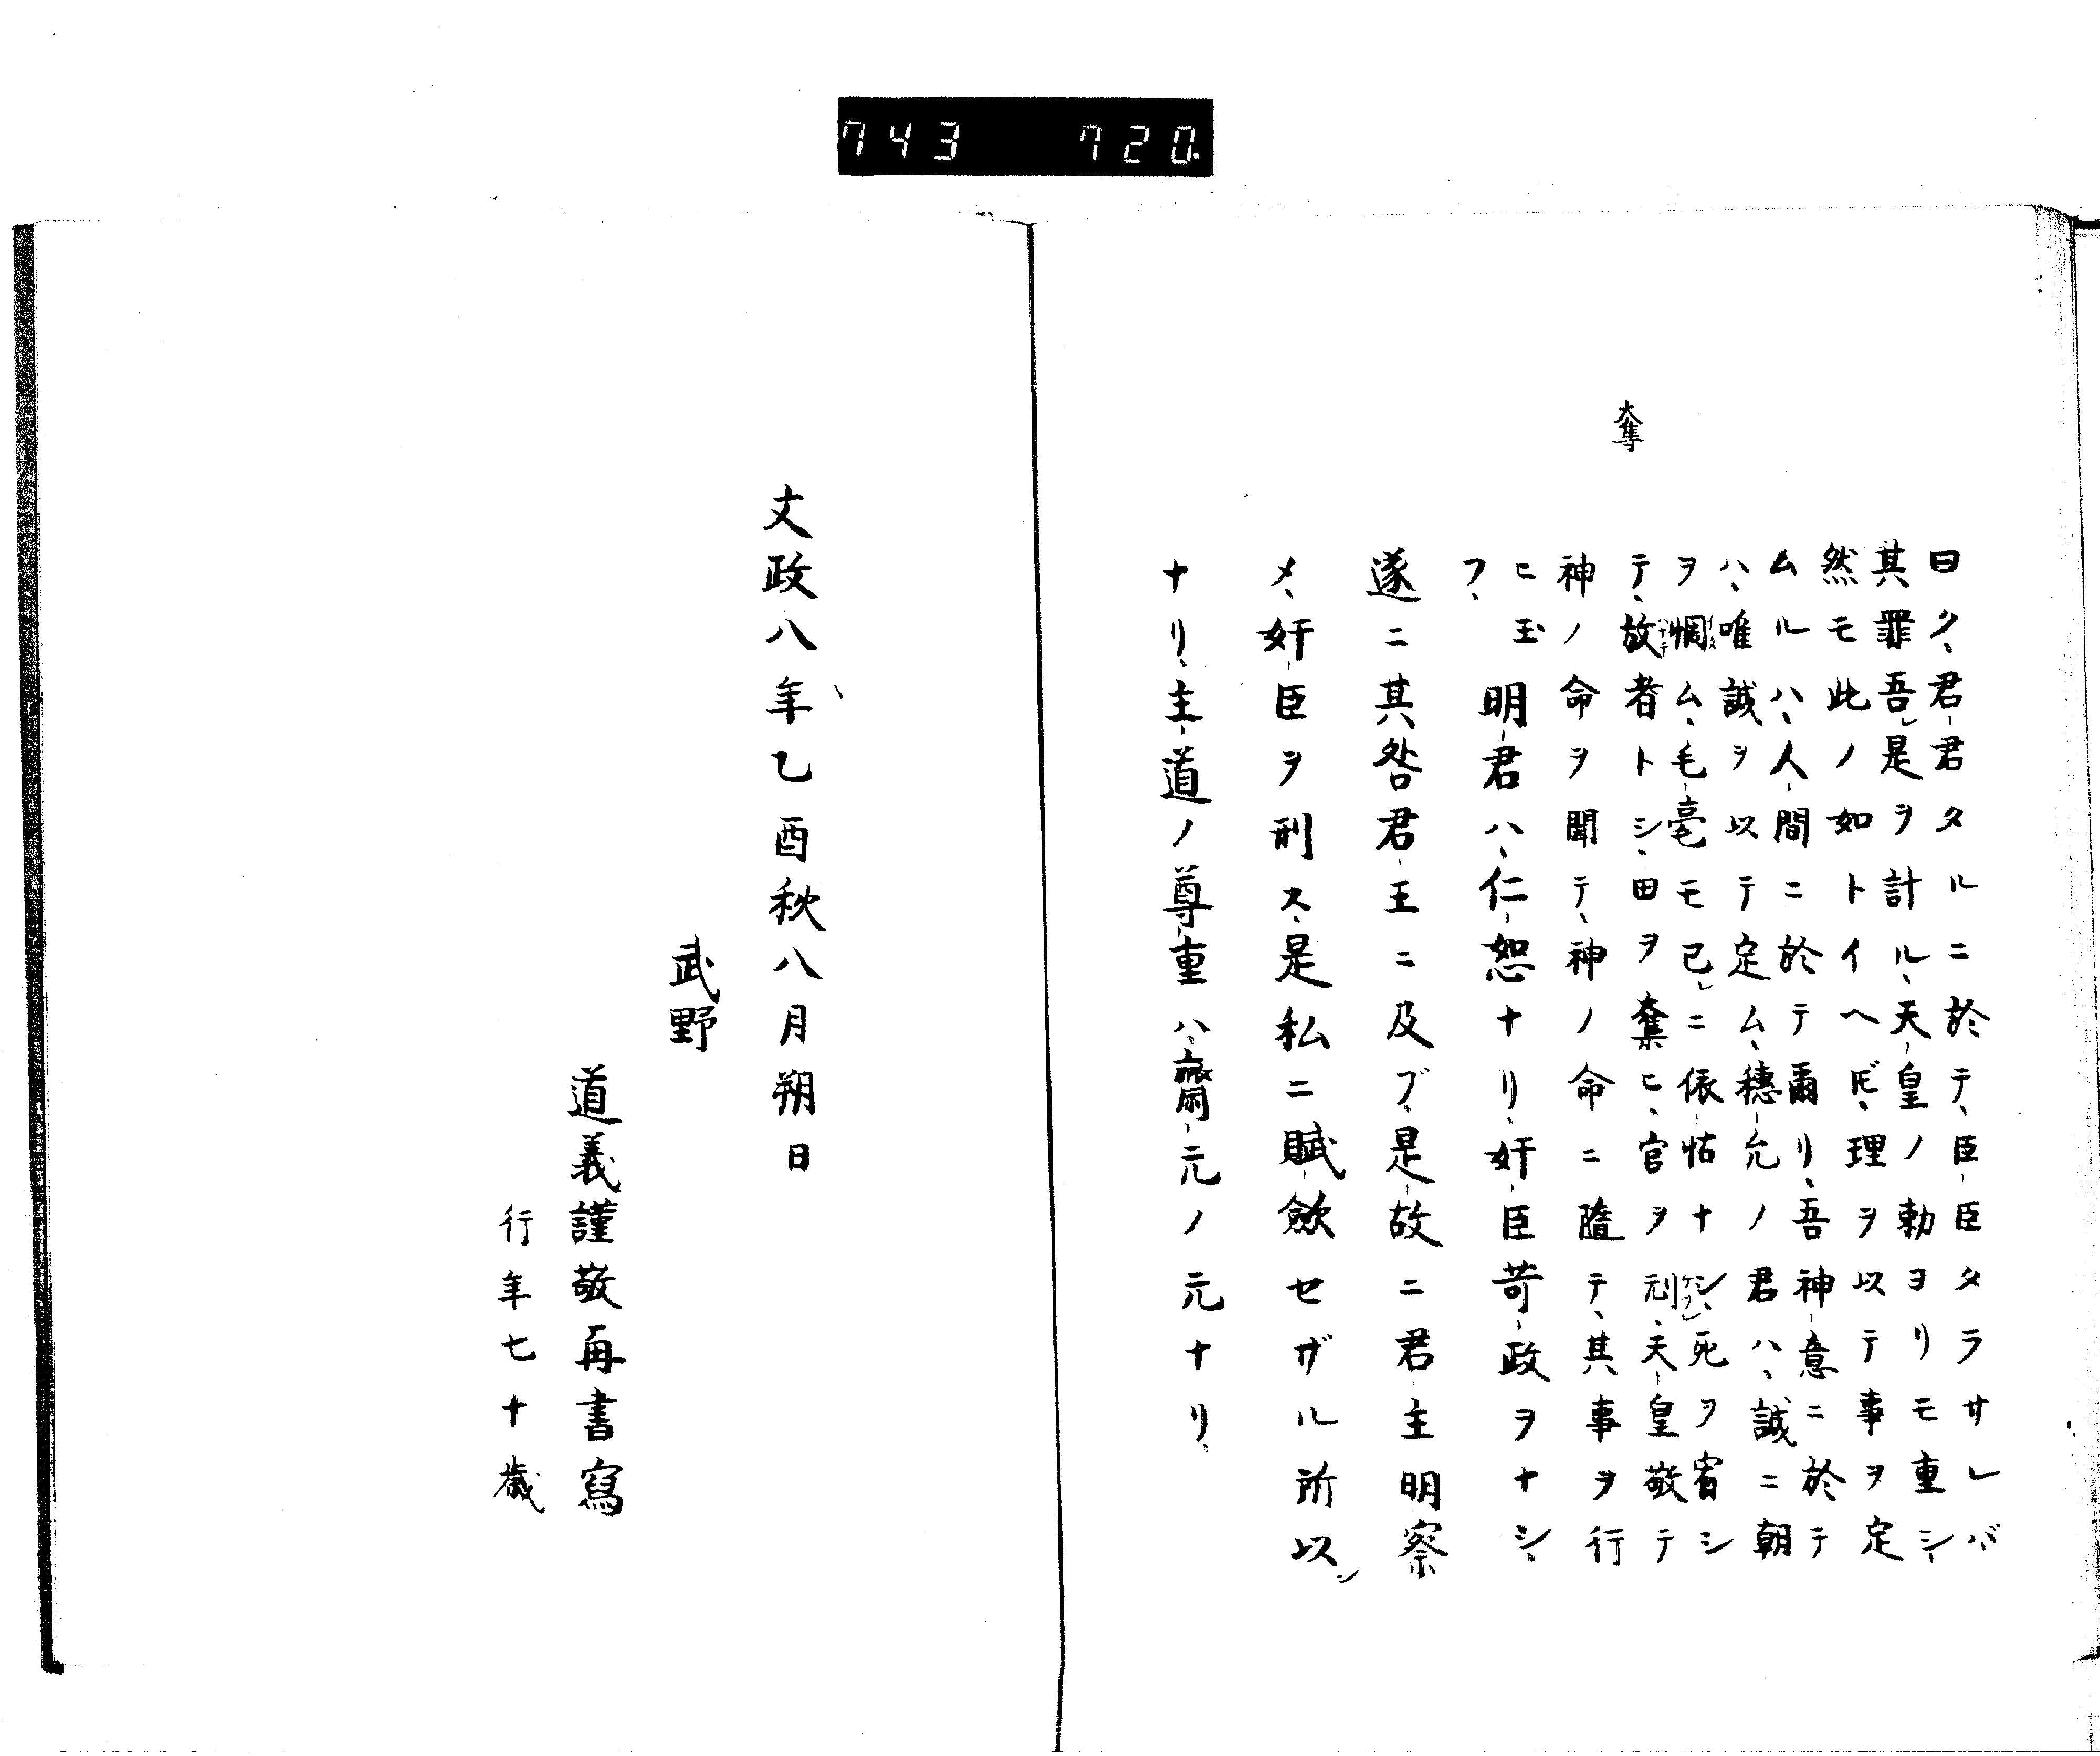 743 720.
奪
曰ク、君君タルニ於テ、臣臣タラサレバ
其罪吾レ是ヲ計ル、天皇ノ勅ヨリモ重シ、
然モ此ノ如トイヘドモ、理ヲ以テ事ヲ定
ムルハ、人間ニ於テ爾リ、吾神意ニ於テ
ハ、唯誠ヲ以テ定ム、穂允ノ君ハ、誠ニ朝
ヲ惘ム、毛毫モ已レニ依怙ナシ、死ヲ宥シ
テ、放者トシ、田ヲ奪ヒ、官ヲ刓、天皇敬テ
神ノ命ヲ聞テ、神ノ命ニ隨テ、其事ヲ行
ヒ玉フ、
明君ハ、仁恕ナリ、奸臣苛政ヲナシ、
遂ニ其咎君王ニ及ブ、是故ニ君主明察
メ、奸臣ヲ刑ス、是私ニ賦歛セザル所以ン
ナリ、主道ノ尊重ハ、齋元ノ元ナリ、
文政八年乙酉秋八月朔日
武野
道義謹敬再書寫
行年七十歳